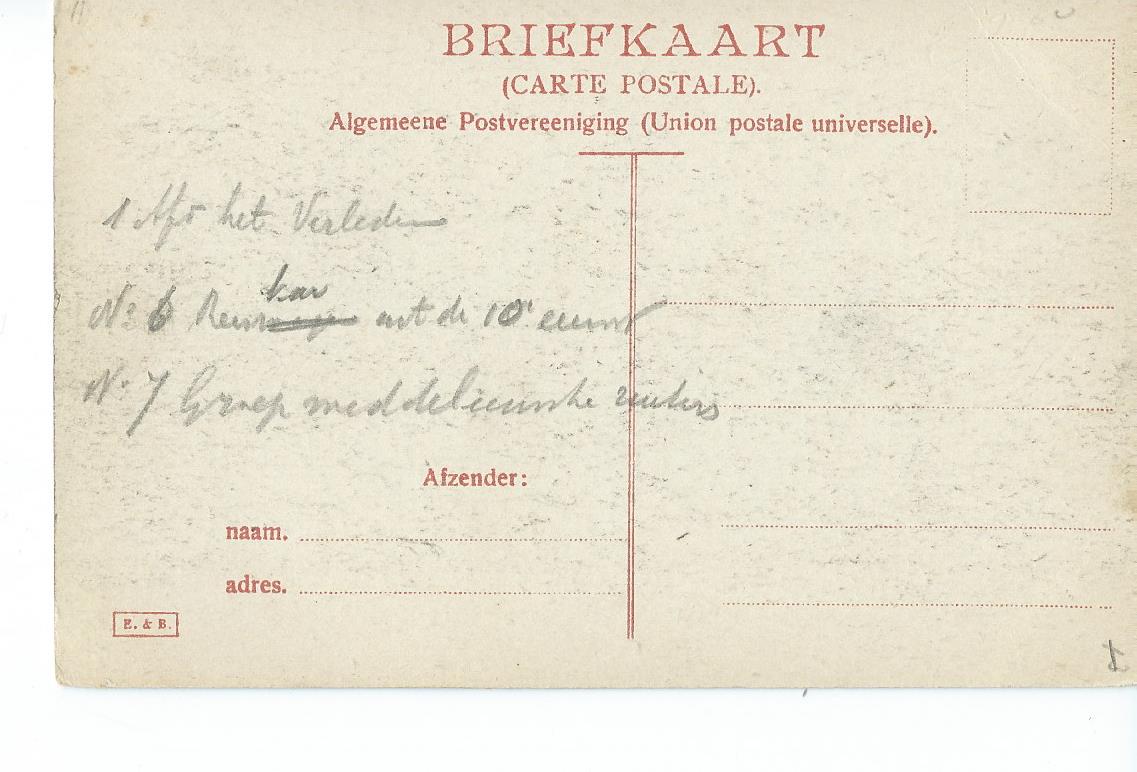 BRIEFKAART
(CARTE POSTALE).
Algemeene Postvereeniging (Union postale universelle).
1 het Verleden
kar
No 6 uit de 10e eeuw
No 7 Groep middeleeuwsche ruiters
Afzender:
naam.
adres.
E. & B.